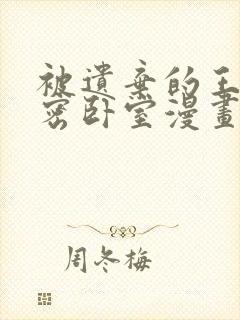 被遺棄的王
密卧室漫畫
周冬梅